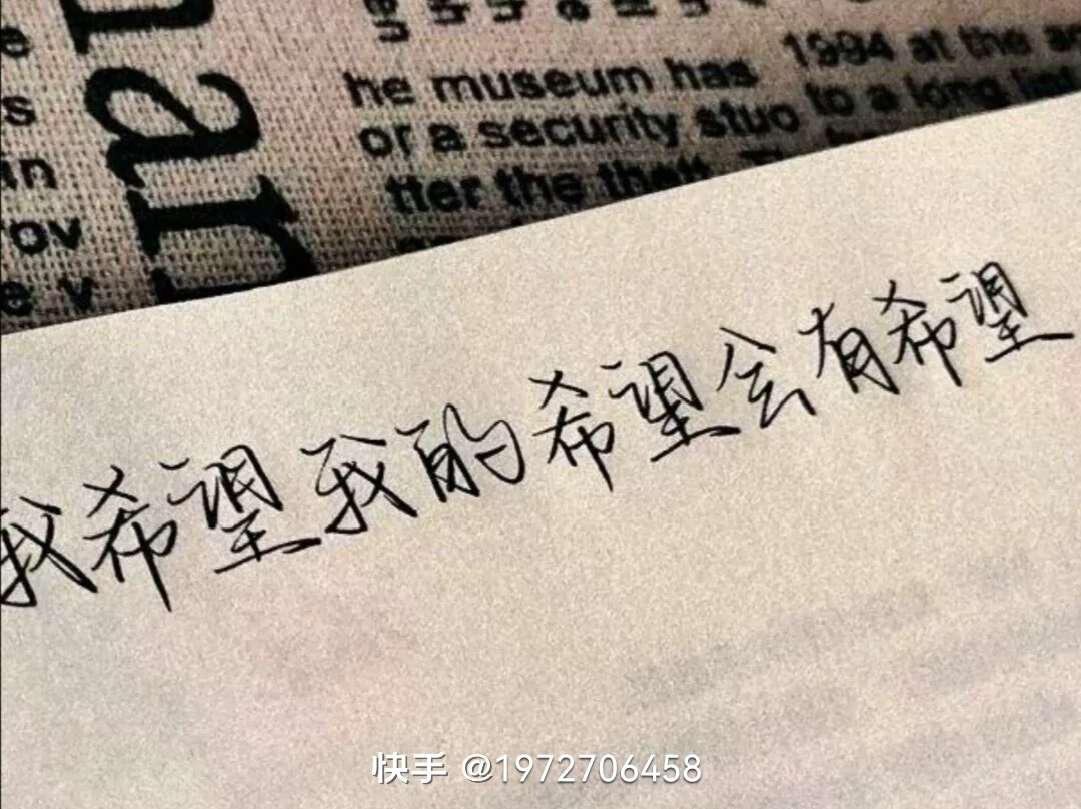 he museum has 1994 at the
or a security stuo to a long list
tter the theft
in
ov
e v
我希望我的希望会有希望
快手 @1972706458